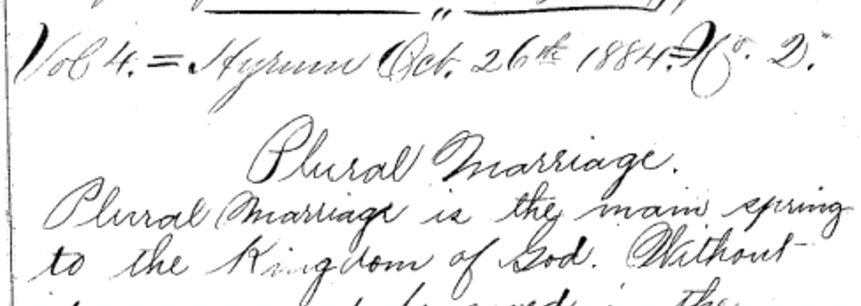 Vol 4. = Hyrum Oct. 26th 1884. = No. 2.
Plural Marriage.
Plural Marriage is the main spring
to the Kingdom of God. Without
the